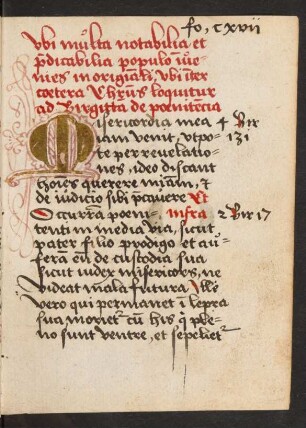 fo, cxvii
Vbi mu̅lta notabilia et
p̄dicabilia populo in̅ue-
nies in originali, vbi in̅ter
cœtera Chr̅us loquitur
ad Birgitta̅ de pœnitẽcia
Misericordia mea 4 Bir
iam venit, vtpo- 131
te per reuelatio-
nes, ideo discant
ho̅i̅es querere mi̅am, ⁊
de iudicio sibi p̄cauere Et
Occurra̅ pœni- infra 2 Bir 17
tenti in media via, sicut
pater filio prodigo et au-
fera̅ eu̅ de custodia sua
sicut iudex misericors, ne
videat ma̅la futura Ille
vero qui permanet in̅ lepra
sua moriet᷑ cu̅ his q̄ ple-
no sunt ventre, et sepeliet᷑